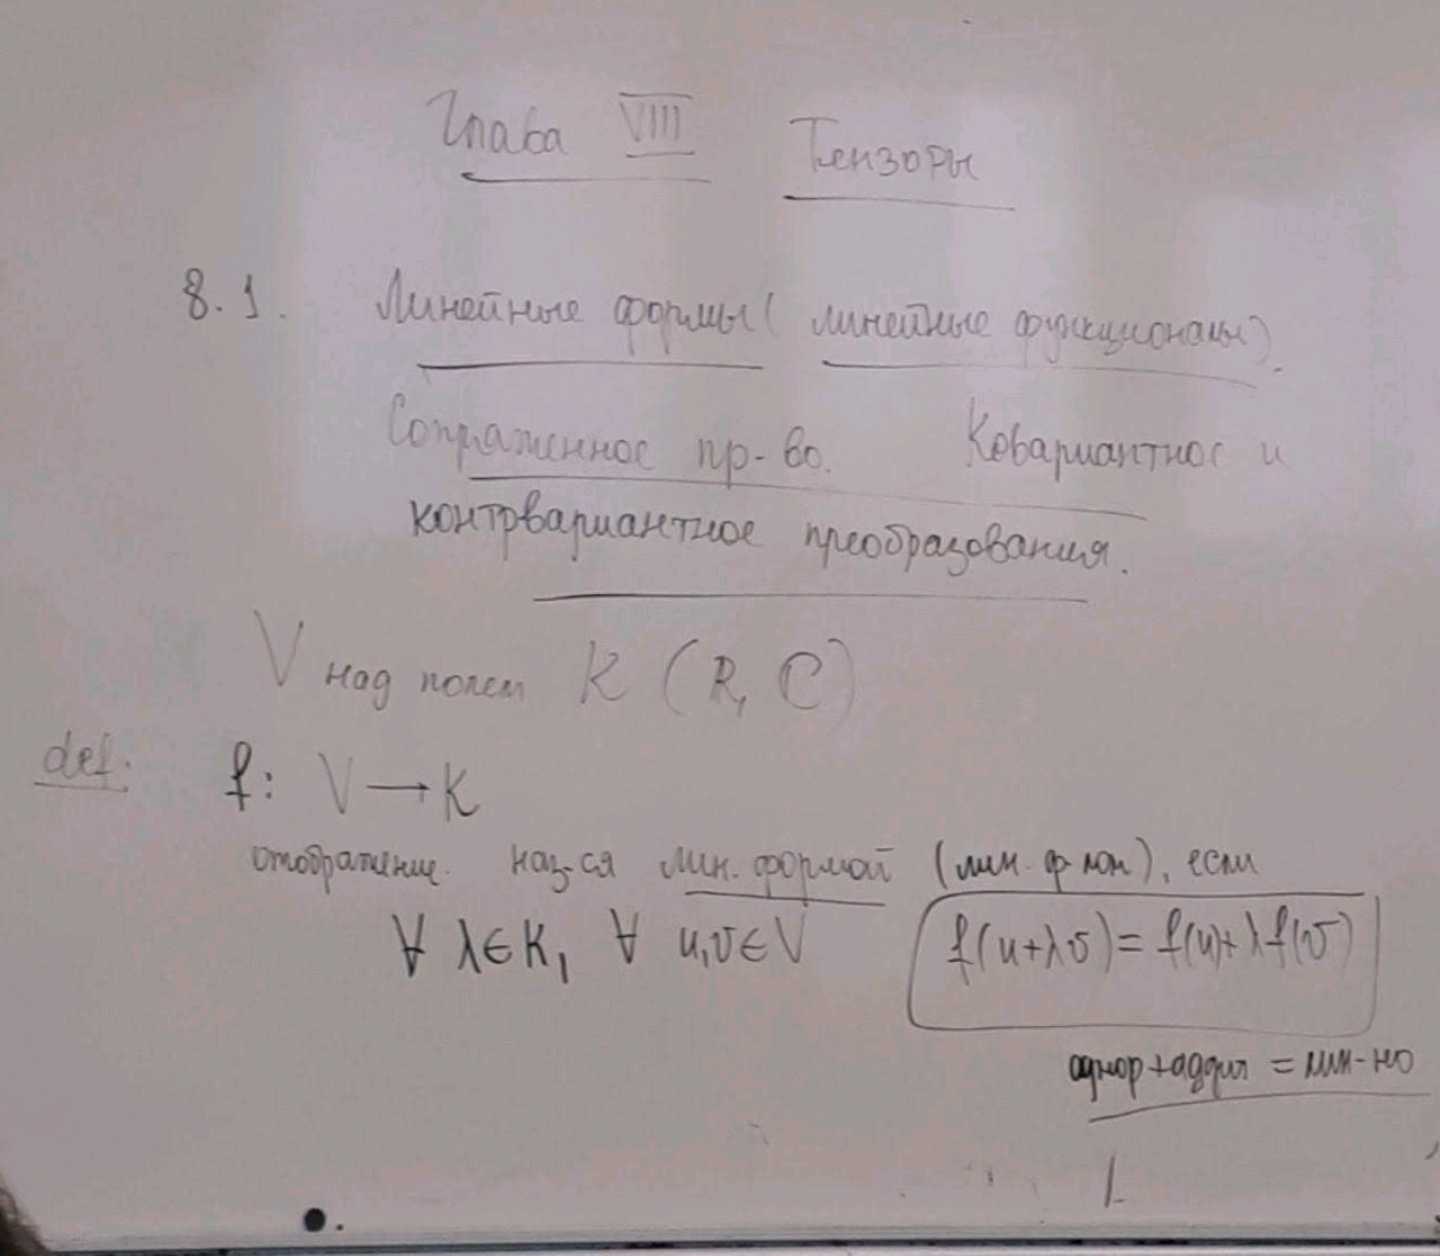 Глава VIII Тензоры
8.1. Линейные формы (линейные функционалы).
Сопряженное пр-во. Ковариантное и
контрвариантное преобразования.
V над полем K (R, C)
def: f: V → K
отображение. наз-ся лин. формой (лин. ф-лом), если
∀ λ∈K, ∀ u,v∈V f(u+λv) = f(u)+λf(v)
однор+аддит = лин-но